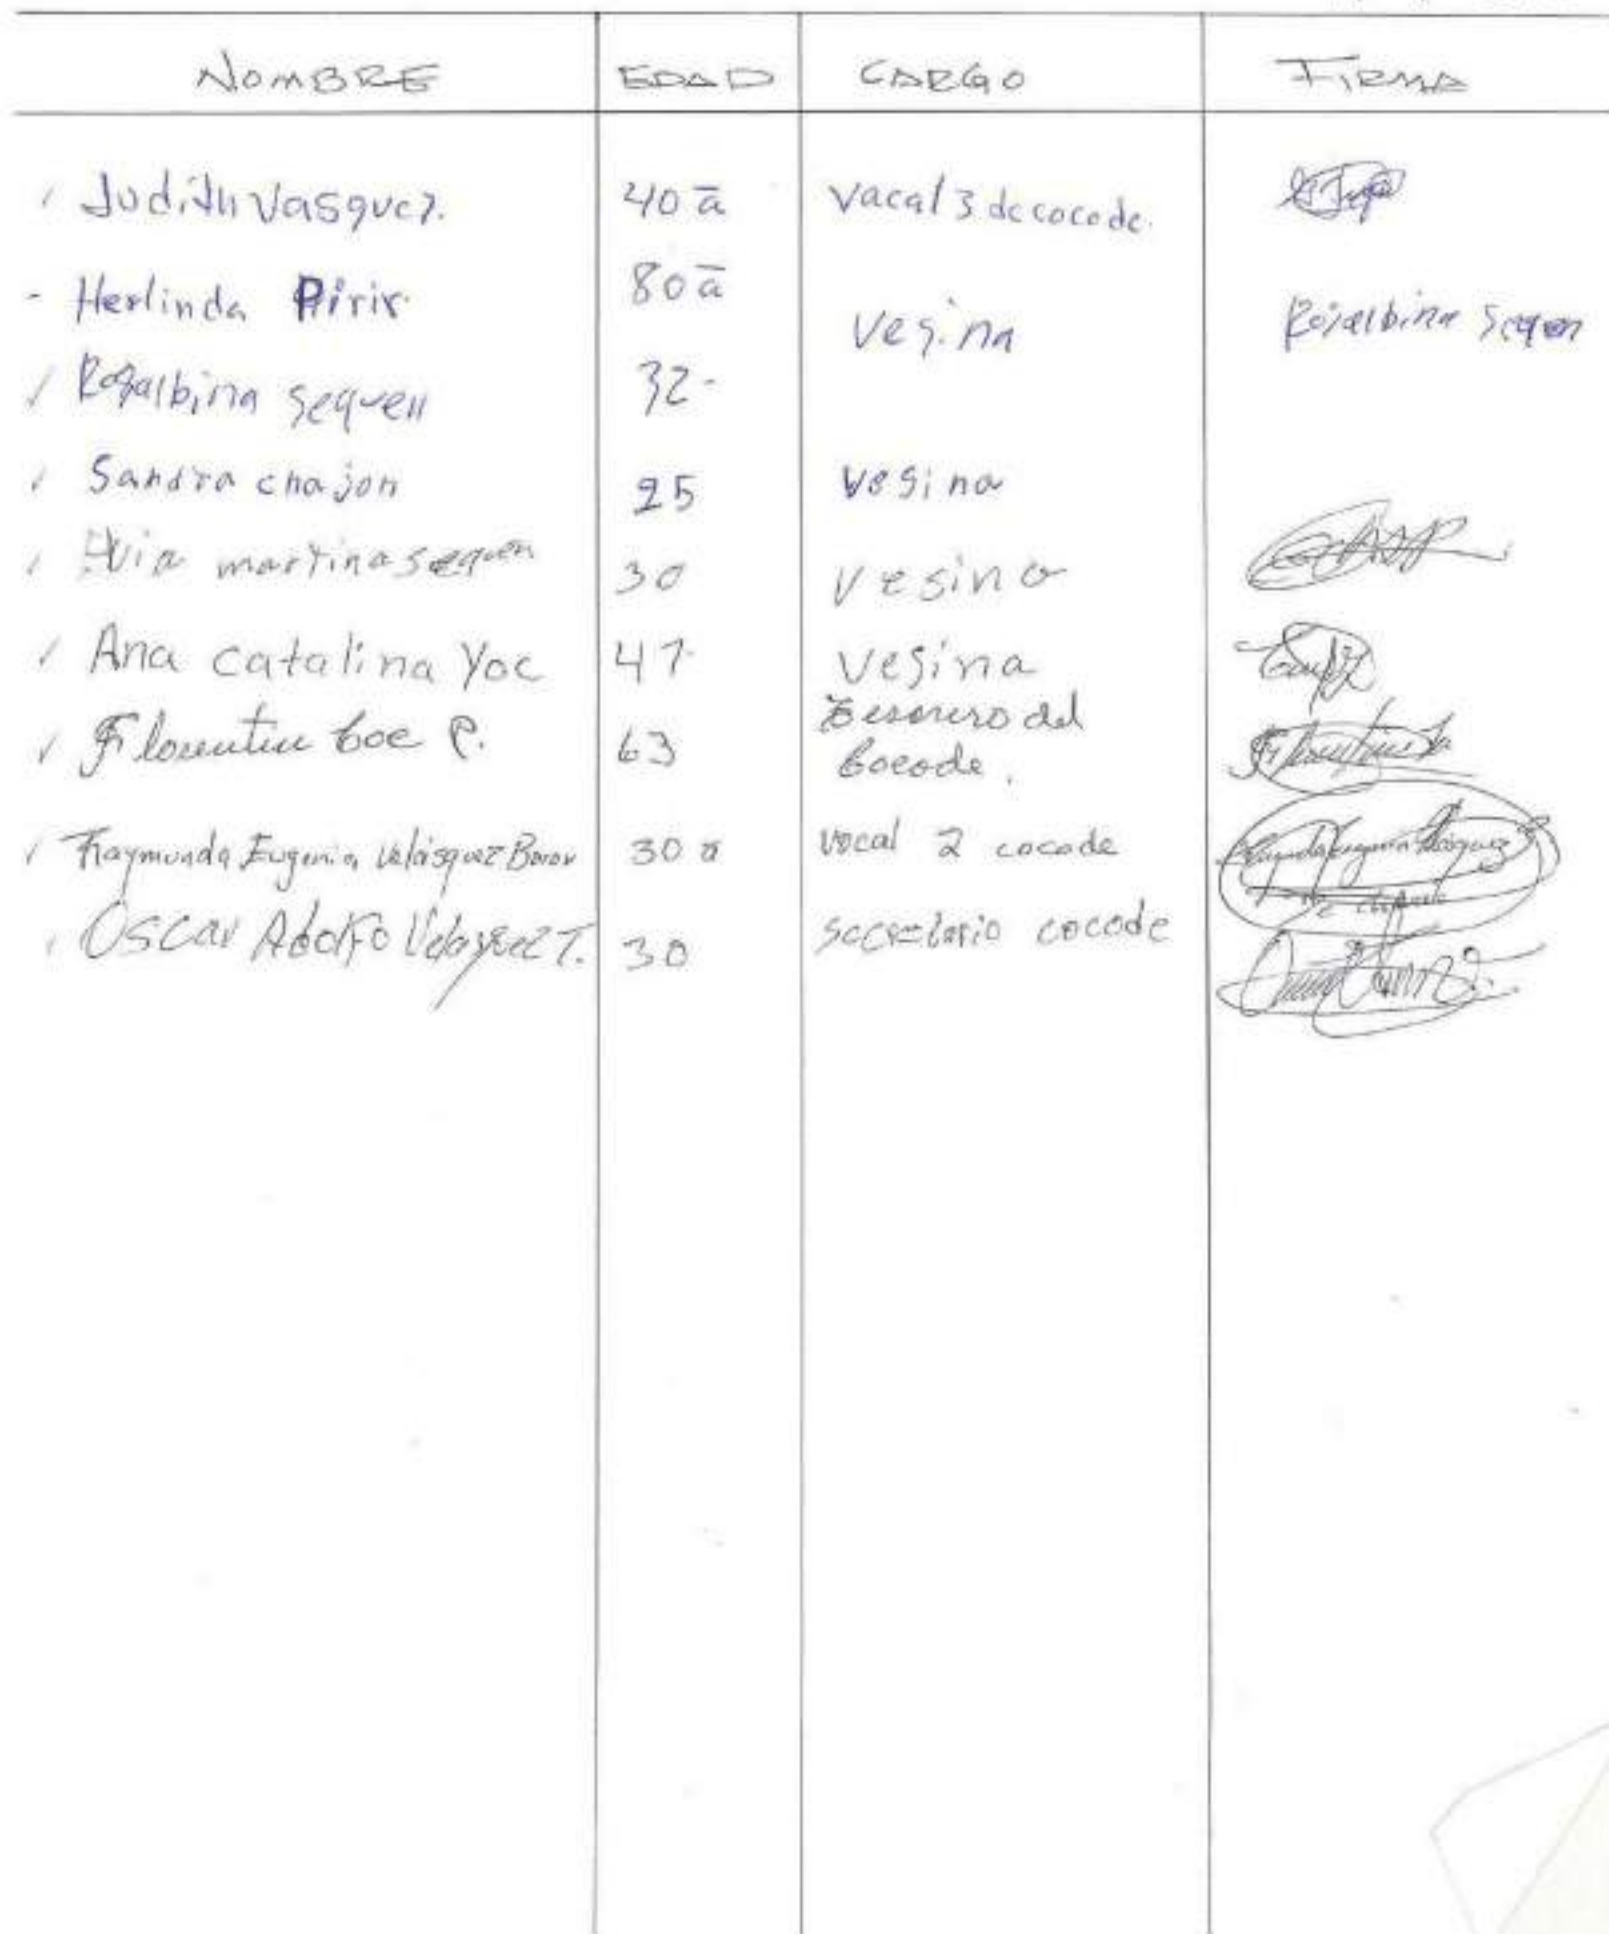 NOMBRE EDAD CARGO FIRMA
Judith Vasquez. 40 a vacal 3 de cocode.
- Herlinda Pirir 80 a
vesina Rosalbina sequen
Rosalbina sequen 32-
Sandra chajon 25 vesina
martina sequen 30 vesina
Ana catalina Yoc 47 vesina
Florentin Coc P. 63 Tesorero del
Cocode.
Raymunda Eugenia Velásquez Boror 30 a vocal 2 cocode
Oscar Adolfo Velasquez T. 30 secretario cocode